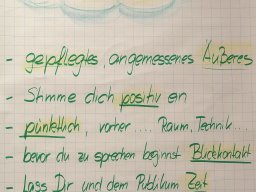 - gepflegtes, angemessenes Äußeres
- Stimme dich positiv ein
- pünktlich, vorher .... Raum, Technik...
- bevor du zu sprechen beginnst Blickkontakt
- Lass Dir und dem Publikum Zeit